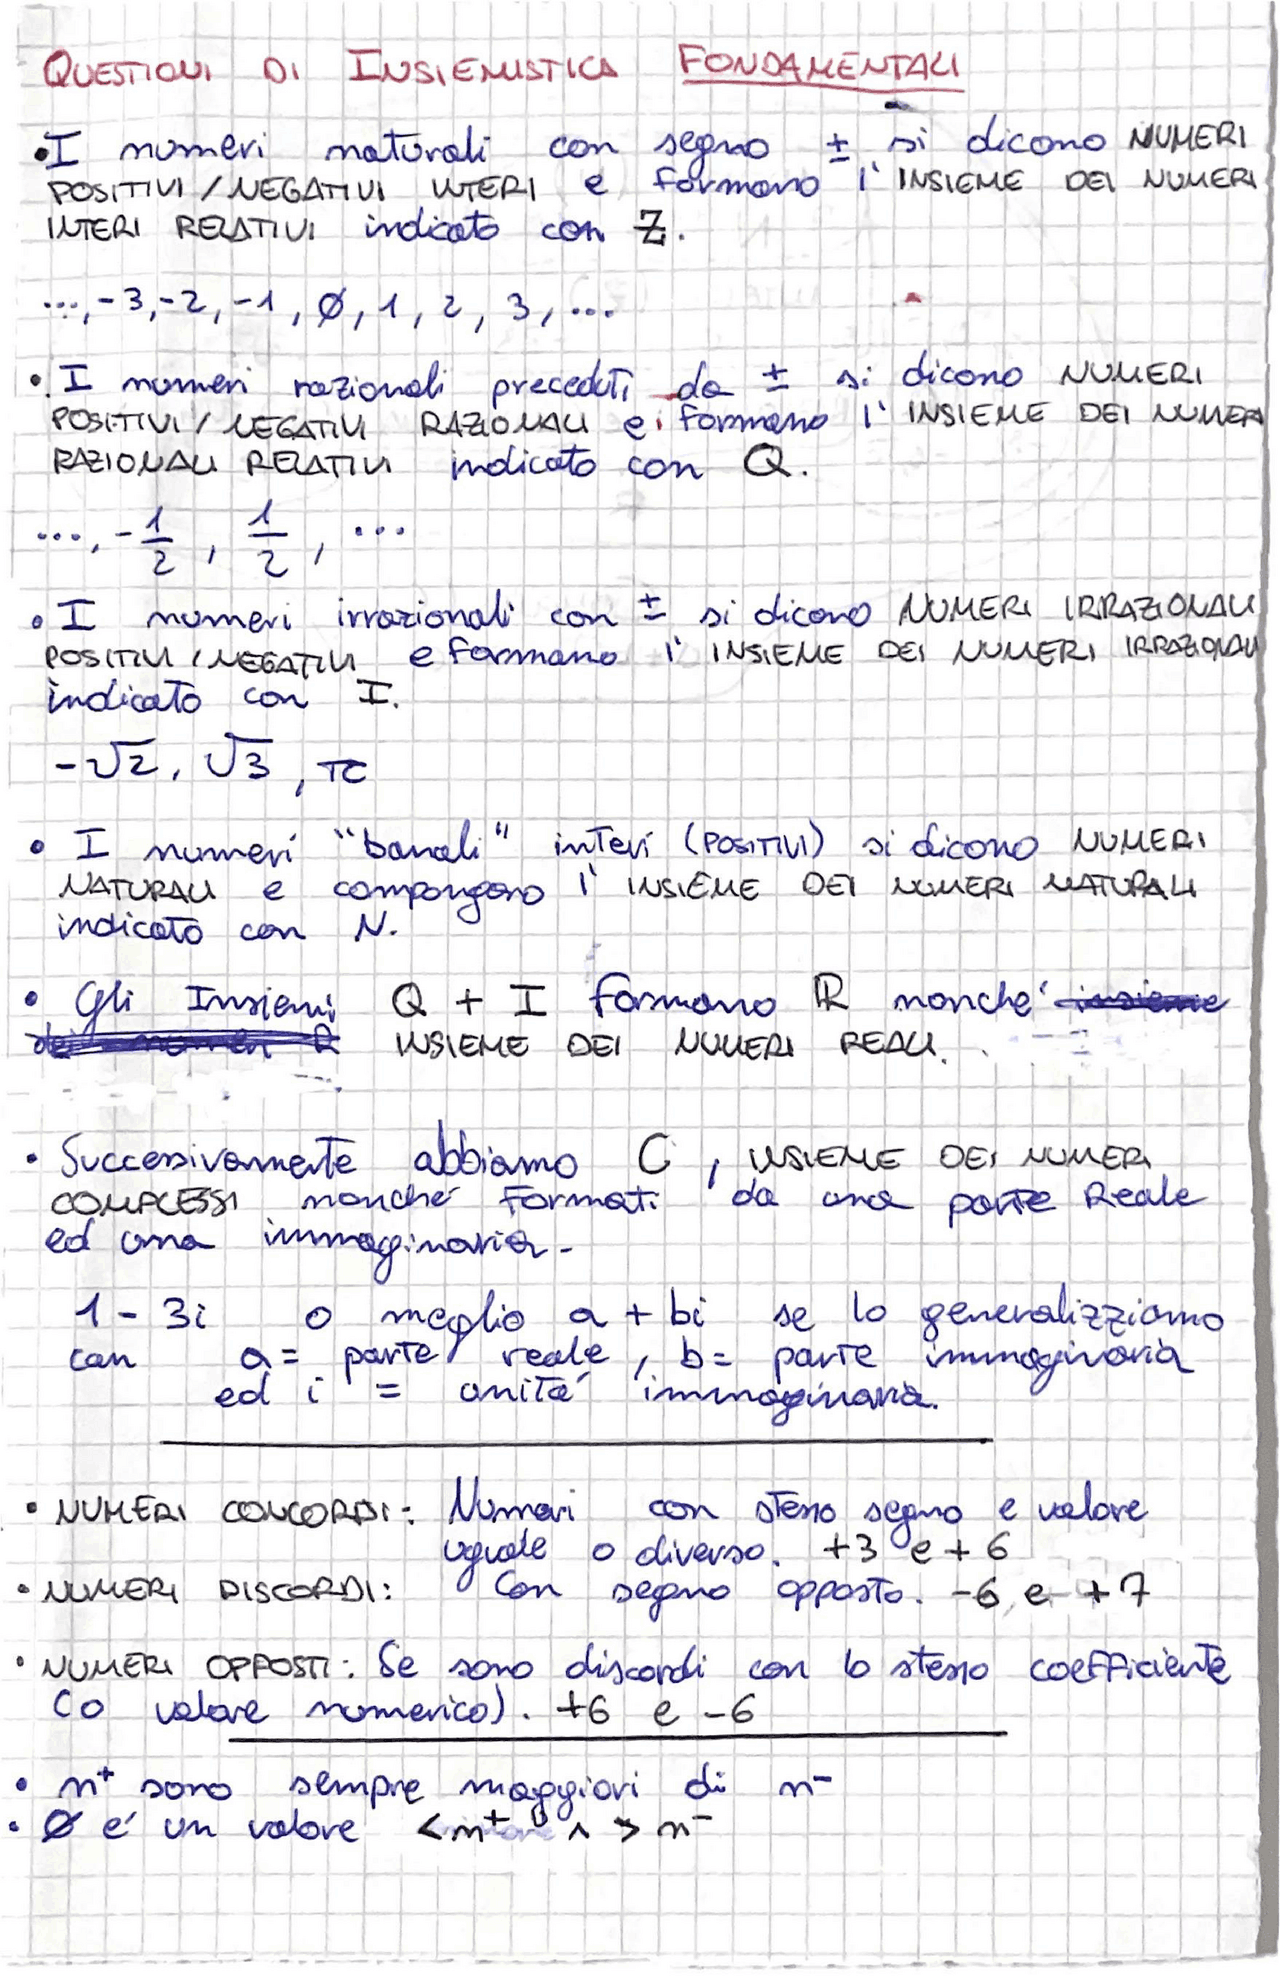 QUESTIONI DI INSIEMISTICA FONDAMENTALI
• I numeri naturali con segno ± si dicono NUMERI
POSITIVI/NEGATIVI INTERI e formano l'INSIEME DEI NUMERI
INTERI RELATIVI indicato con ℤ.
..., -3, -2, -1, Ø, 1, 2, 3, ...
• I numeri razionali preceduti da ± si dicono NUMERI
POSITIVI/NEGATIVI RAZIONALI e formano l'INSIEME DEI NUMERI
RAZIONALI RELATIVI indicato con Q.
..., -1/2, 1/2, ...
• I numeri irrazionali con ± si dicono NUMERI IRRAZIONALI
POSITIVI/NEGATIVI e formano l'INSIEME DEI NUMERI IRRAZIONALI
indicato con I.
-√2, √3, π
• I numeri "banali" interi (POSITIVI) si dicono NUMERI
NATURALI e compongono l'INSIEME DEI NUMERI NATURALI
indicato con N.
• Gli Insiemi Q + I formano ℝ nonche' insieme
dei numeri R INSIEME DEI NUMERI REALI.
• Successivamente abbiamo C, INSIEME DEI NUMERI
COMPLESSI nonché formati da una parte Reale
ed una immaginaria.
1 - 3i o meglio a + bi se lo generalizziamo
con a = parte reale, b = parte immaginaria
ed i = unità immaginaria.
• NUMERI CONCORDI: Numeri con stesso segno e valore
uguale o diverso. +3 e +6
• NUMERI DISCORDI: Con segno opposto. -6 e +7
• NUMERI OPPOSTI: Se sono discordi con lo stesso coefficiente
(o valore numerico). +6 e -6
• n⁺ sono sempre maggiori di n⁻
• Ø e' un valore < n⁺ ∧ > n⁻